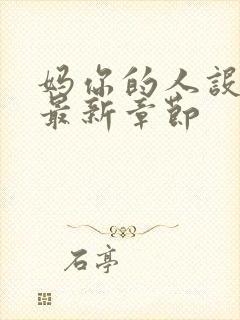 妈你的人设
最新章节
石亭